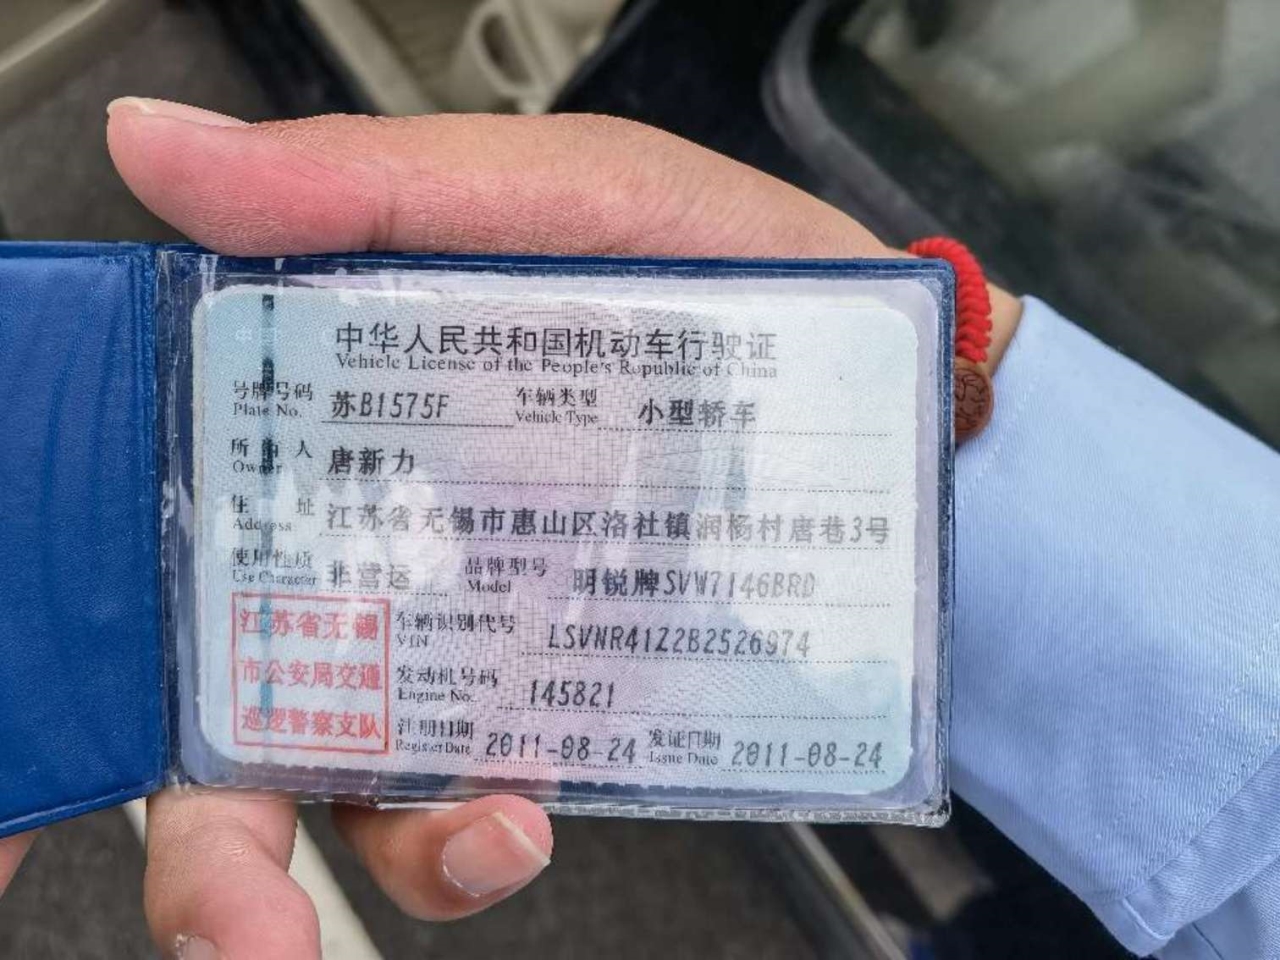 中华人民共和国机动车行驶证
Vehicle License of the People's Republic of China
号牌号码 苏B1575F 车辆类型 小型轿车
Plate No. Vehicle Type
所有人 唐新力
Owner
住址 江苏省无锡市惠山区洛社镇润杨村唐巷3号
Address
使用性质 非营运 品牌型号 明锐牌SVW7146BRD
Use Character Model
江苏省无锡
市公安局交通
巡逻警察支队
车辆识别代号 LSVNR41Z2B2526974
VIN
发动机号码 145821
Engine No.
注册日期 2011-08-24 发证日期 2011-08-24
Register Date Issue Date